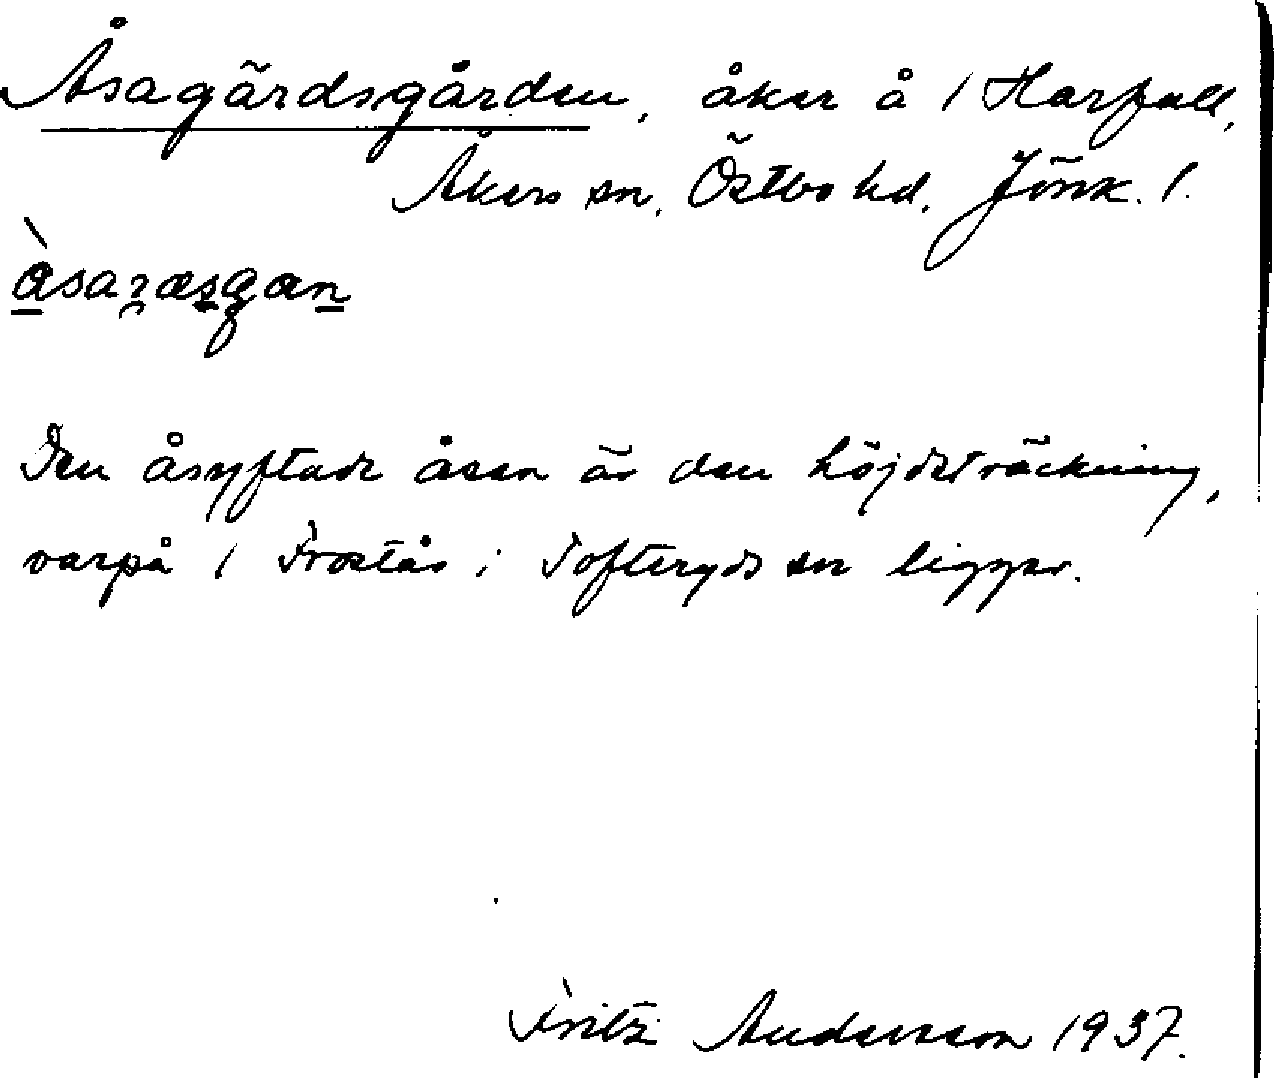 Åsagärdsgården, åker å 1 Harpall,
Åkers sn. Östbo hd. Jönk. l.
Den åsyftade åsen är den höjdsträckning,
varpå 1 Frostås i Tofteryds sn ligger.
Fritz Andersson 1937.